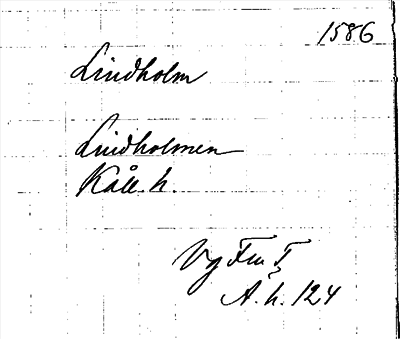 1586
Lindholm
Lindholmen
Kåll. h.
Vg Fm T
A. h. 124